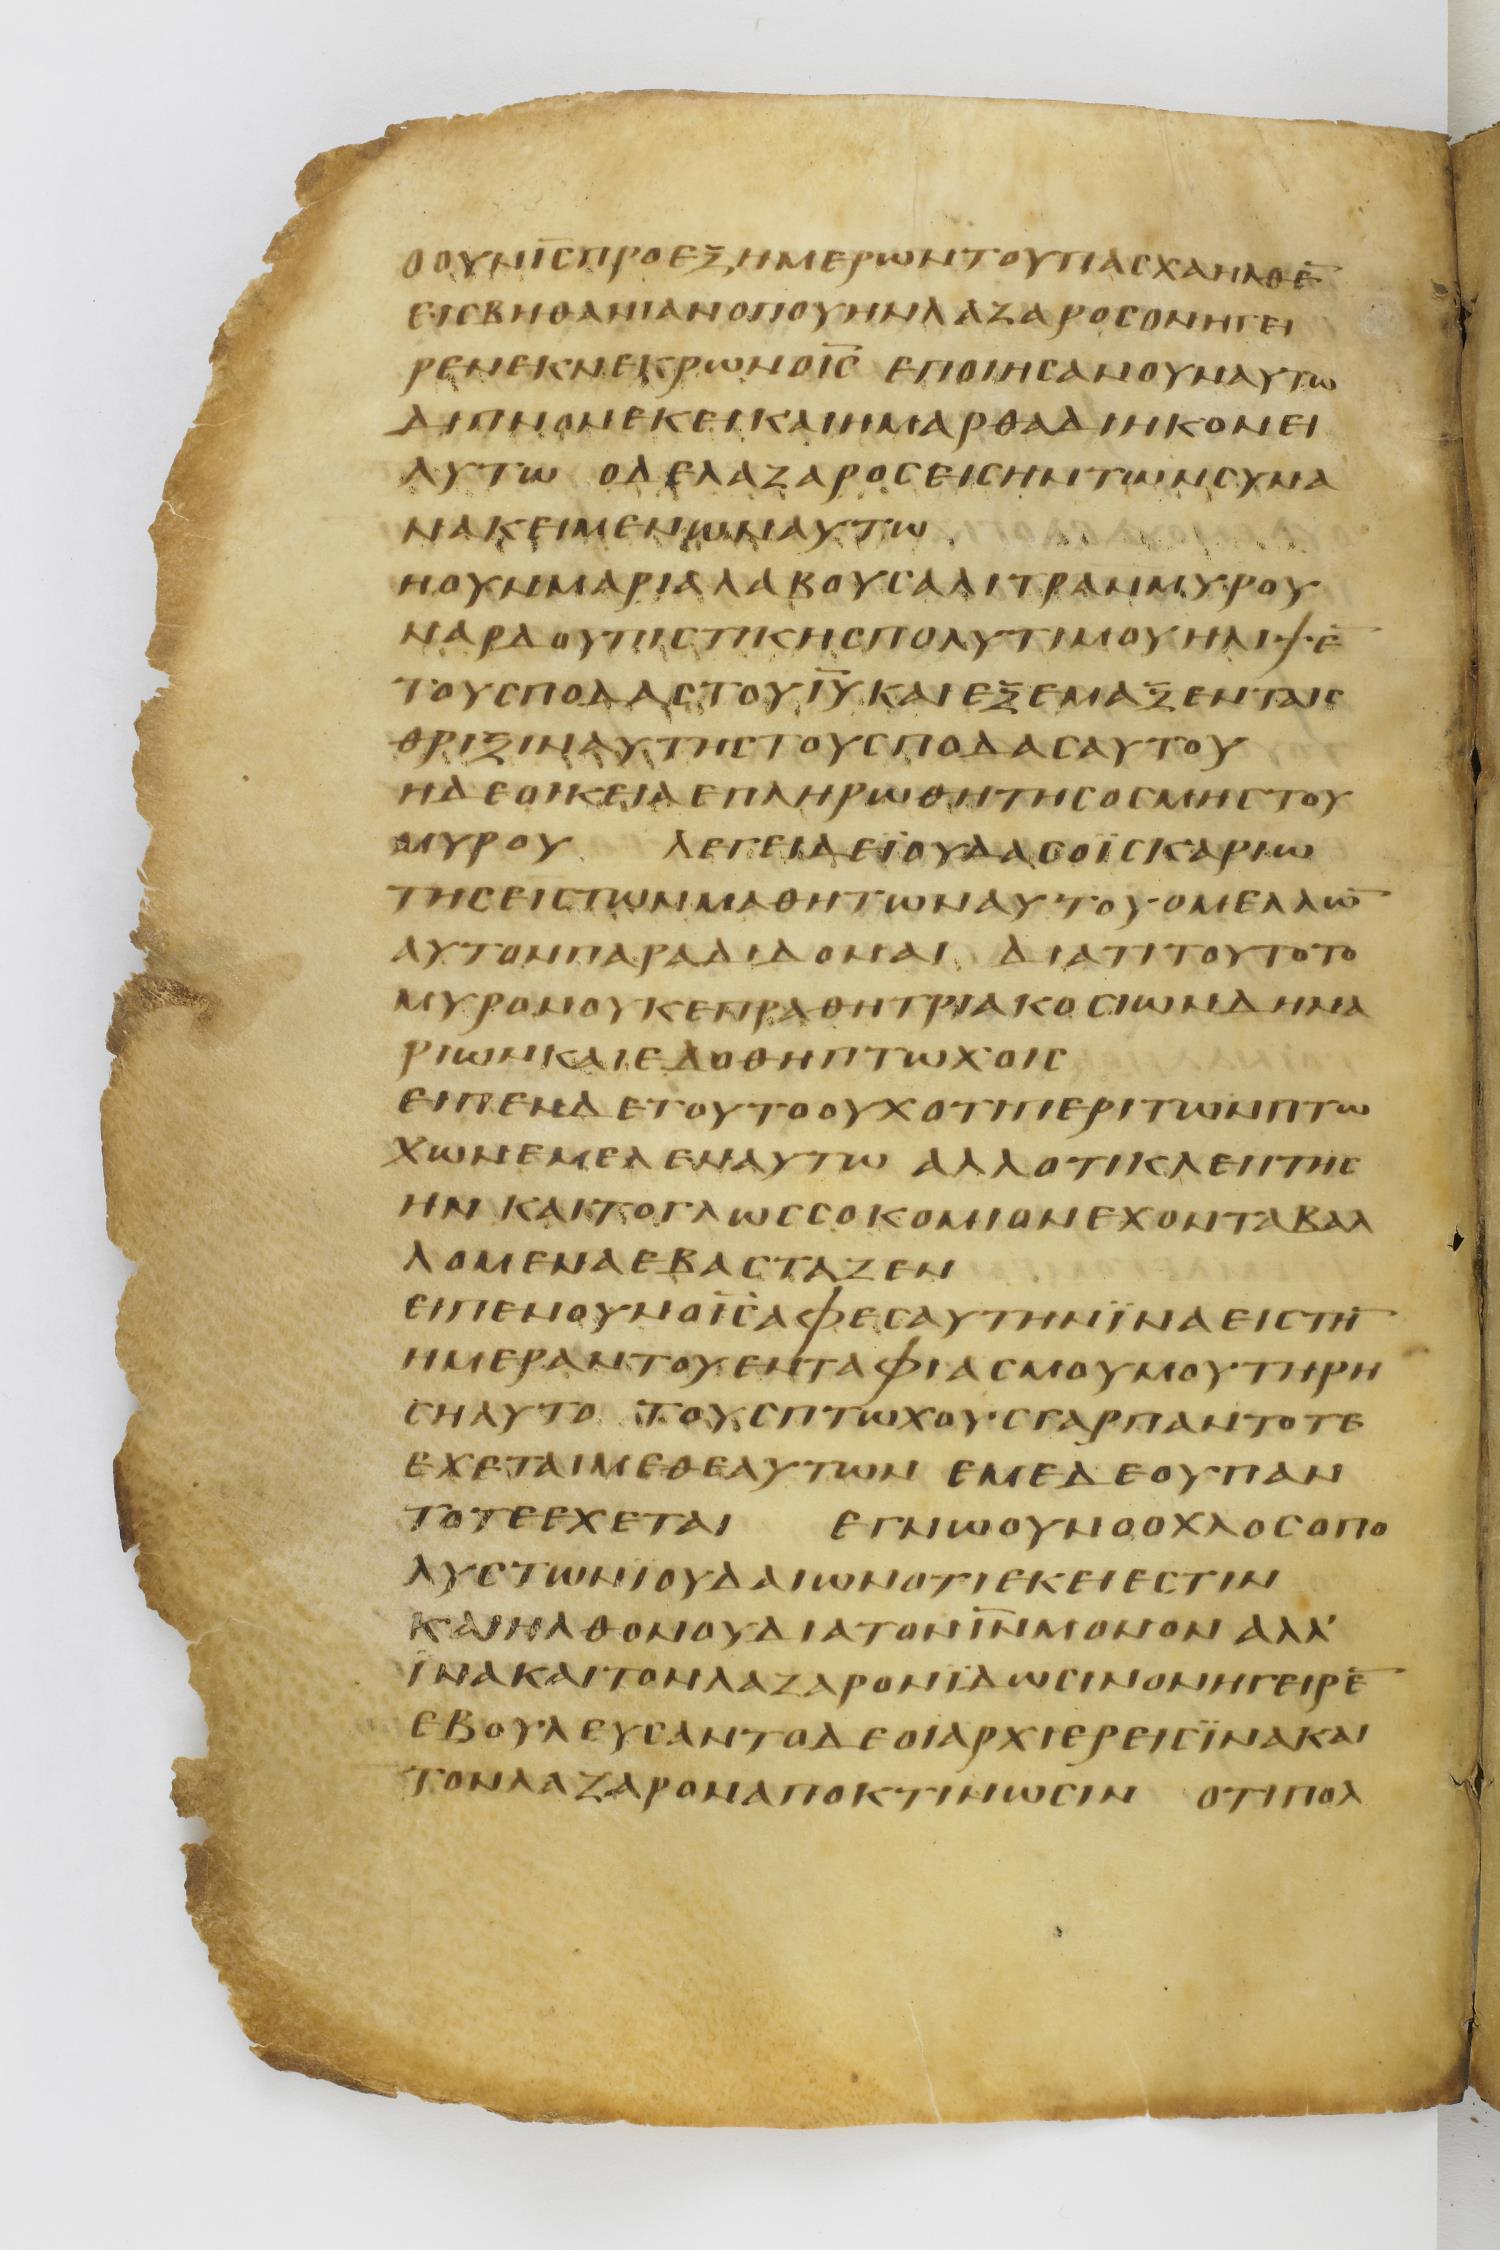 ΟΟΥΝΙ̅Ϲ̅ΠΡΟΕΞΗΜΕΡΩΝΤΟΥΠΑϹΧΑΗΛΘΕ̅
ΕΙϹΒΗΘΑΝΙΑΝΟΠΟΥΗΝΛΑΖΑΡΟϹΟΝΗΓΕΙ
ΡΕΝΕΚΝΕΚΡΩΝΟΙ̅Ϲ̅ ΕΠΟΙΗϹΑΝΟΥΝΑΥΤΩ
ΔΙΠΝΟΝΕΚΕΙΚΑΙΗΜΑΡΘΑΔΙΗΚΟΝΕΙ
ΑΥΤΩ ΟΔΕΛΑΖΑΡΟϹΕΙϹΗΝΤΩΝϹΥΝΑ
ΝΑΚΕΙΜΕΝΩΝΑΥΤΩ
ΗΟΥΝΜΑΡΙΑΛΑΒΟΥϹΑΛΙΤΡΑΝΜΥΡΟΥ
ΝΑΡΔΟΥΠΙϹΤΙΚΗϹΠΟΛΥΤΙΜΟΥΗΛΙΨΕ̅
ΤΟΥϹΠΟΔΑϹΤΟΥΙ̅Υ̅ΚΑΙΕΞΕΜΑΞΕΝΤΑΙϹ
ΘΡΙΞΙΝΑΥΤΗϹΤΟΥϹΠΟΔΑϹΑΥΤΟΥ
ΗΔΕΟΙΚΕΙΑΕΠΛΗΡΩΘΗΤΗϹΟϹΜΗϹΤΟΥ
ΜΥΡΟΥ ΛΕΓΕΙΔΕΪΟΥΔΑϹΟΪϹΚΑΡΙΩ
ΤΗϹΕΙϹΤΩΝΜΑΘΗΤΩΝΑΥΤΟΥ·ΟΜΕΛΛΩ̅
ΑΥΤΟΝΠΑΡΑΔΙΔΟΝΑΙ ΔΙΑΤΙΤΟΥΤΟΤΟ
ΜΥΡΟΝΟΥΚΕΠΡΑΘΗΤΡΙΑΚΟϹΙΩΝΔΗΝΑ
ΡΙΩΝΚΑΙΕΔΟΘΗΠΤΩΧΟΙϹ
ΕΙΠΕΝΔΕΤΟΥΤΟΟΥΧΟΤΙΠΕΡΙΤΩΝΠΤΩ
ΧΩΝΕΜΕΛΕΝΑΥΤΩ ΑΛΛΟΤΙΚΛΕΠΤΗϹ
ΗΝ ΚΑΙΤΟΓΛΩϹϹΟΚΟΜΙΟΝΕΧΟΝΤΑΒΑΛ
ΛΟΜΕΝΑΕΒΑϹΤΑΖΕΝ
ΕΙΠΕΝΟΥΝΟΙ̅Ϲ̅ΑΦΕϹΑΥΤΗΝΪΝΑΕΙϹΤΗ̅
ΗΜΕΡΑΝΤΟΥΕΝΤΑΦΙΑϹΜΟΥΜΟΥΤΗΡΗ
ϹΗΑΥΤΟ ΤΟΥϹΠΤΩΧΟΥϹΓΑΡΠΑΝΤΟΤΕ
ΕΧΕΤΑΙΜΕΘΕΑΥΤΩΝ ΕΜΕΔΕΟΥΠΑΝ
ΤΟΤΕΕΧΕΤΑΙ ΕΓΝΩΟΥΝΟΟΧΛΟϹΟΠΟ
ΛΥϹΤΩΝΪΟΥΔΑΙΩΝΟΤΙΕΚΕΙΕϹΤΙΝ
ΚΑΙΗΛΘΟΝΟΥΔΙΑΤΟΝΙ̅Ν̅ΜΟΝΟΝ ΑΛΛ'
ΪΝΑΚΑΙΤΟΝΛΑΖΑΡΟΝΪΔΩϹΙΝΟΝΗΓΕΙΡΕ̅
ΕΒΟΥΛΕΥϹΑΝΤΟΔΕΟΙΑΡΧΙΕΡΕΙϹΪΝΑΚΑΙ
ΤΟΝΛΑΖΑΡΟΝΑΠΟΚΤΙΝΩϹΙΝ ΟΤΙΠΟΛ